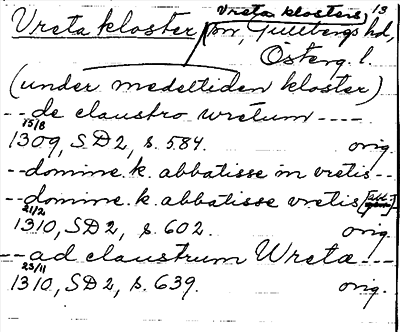 Vreta klosters 13
Vreta kloster, sn, Gullbergs hd,
Österg. l.
(under medeltiden kloster)
-- de claustro wretum ----
15/8
1309, SD2, s. 584. orig.
-- domine. k. abbatisse in vretis --
-- domine. k. abbatisse vretis
21/2
1310, SD2, s. 602. orig.
-- ad claustrum Wreta ---
23/11
1310, SD2, s. 639. orig.